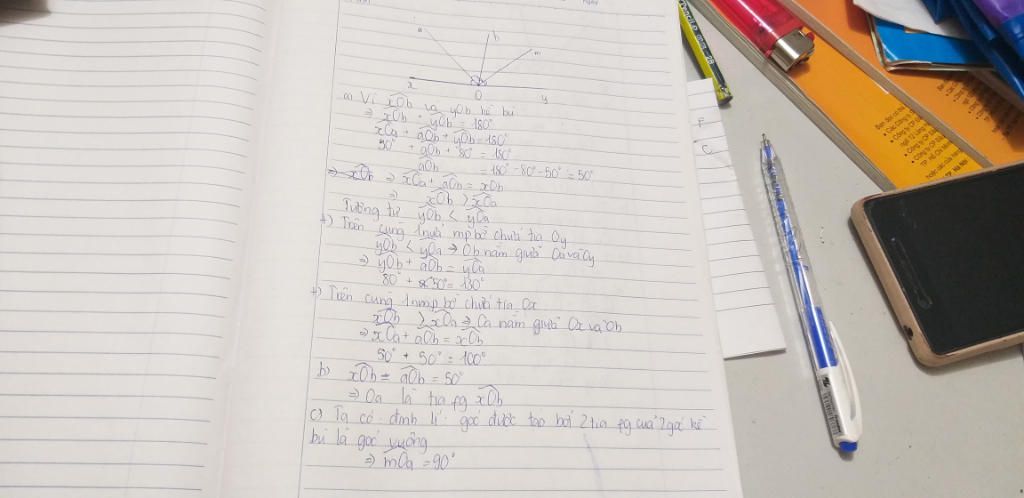 a
b
m
x
O
y
a) Vì xOb và yOb kề bù
⇒ xOb + yOb = 180°
xOa + aOb + yOb = 180°
50° + aOb + 80° = 180°
aOb = 180° - 80° - 50° = 50°
⇒ xOb ⇒ xOa + aOb = xOb
⇒ xOb > xOa
Tương tự yOb < yOa
+) Trên cùng 1 nửa mp bờ chứa tia Oy
yOb < yOa ⇒ Ob nằm giữa Oa và Oy
⇒ yOb + aOb = yOa
80° + 50° = 130°
+) Trên cùng 1nmp bờ chứa tia Ox
xOb > xOa ⇒ Oa nằm giữa Ox và Ob
⇒ xOa + aOb = xOb
50° + 50° = 100°
b) xOb = aOb = 50°
⇒ Oa là tia pg xOb
c) Ta có định lí: góc được tạo bởi 2 tia pg của 2 góc kề
bù là góc vuông
⇒ mOa = 90°
F
C
TP. Hà Nội